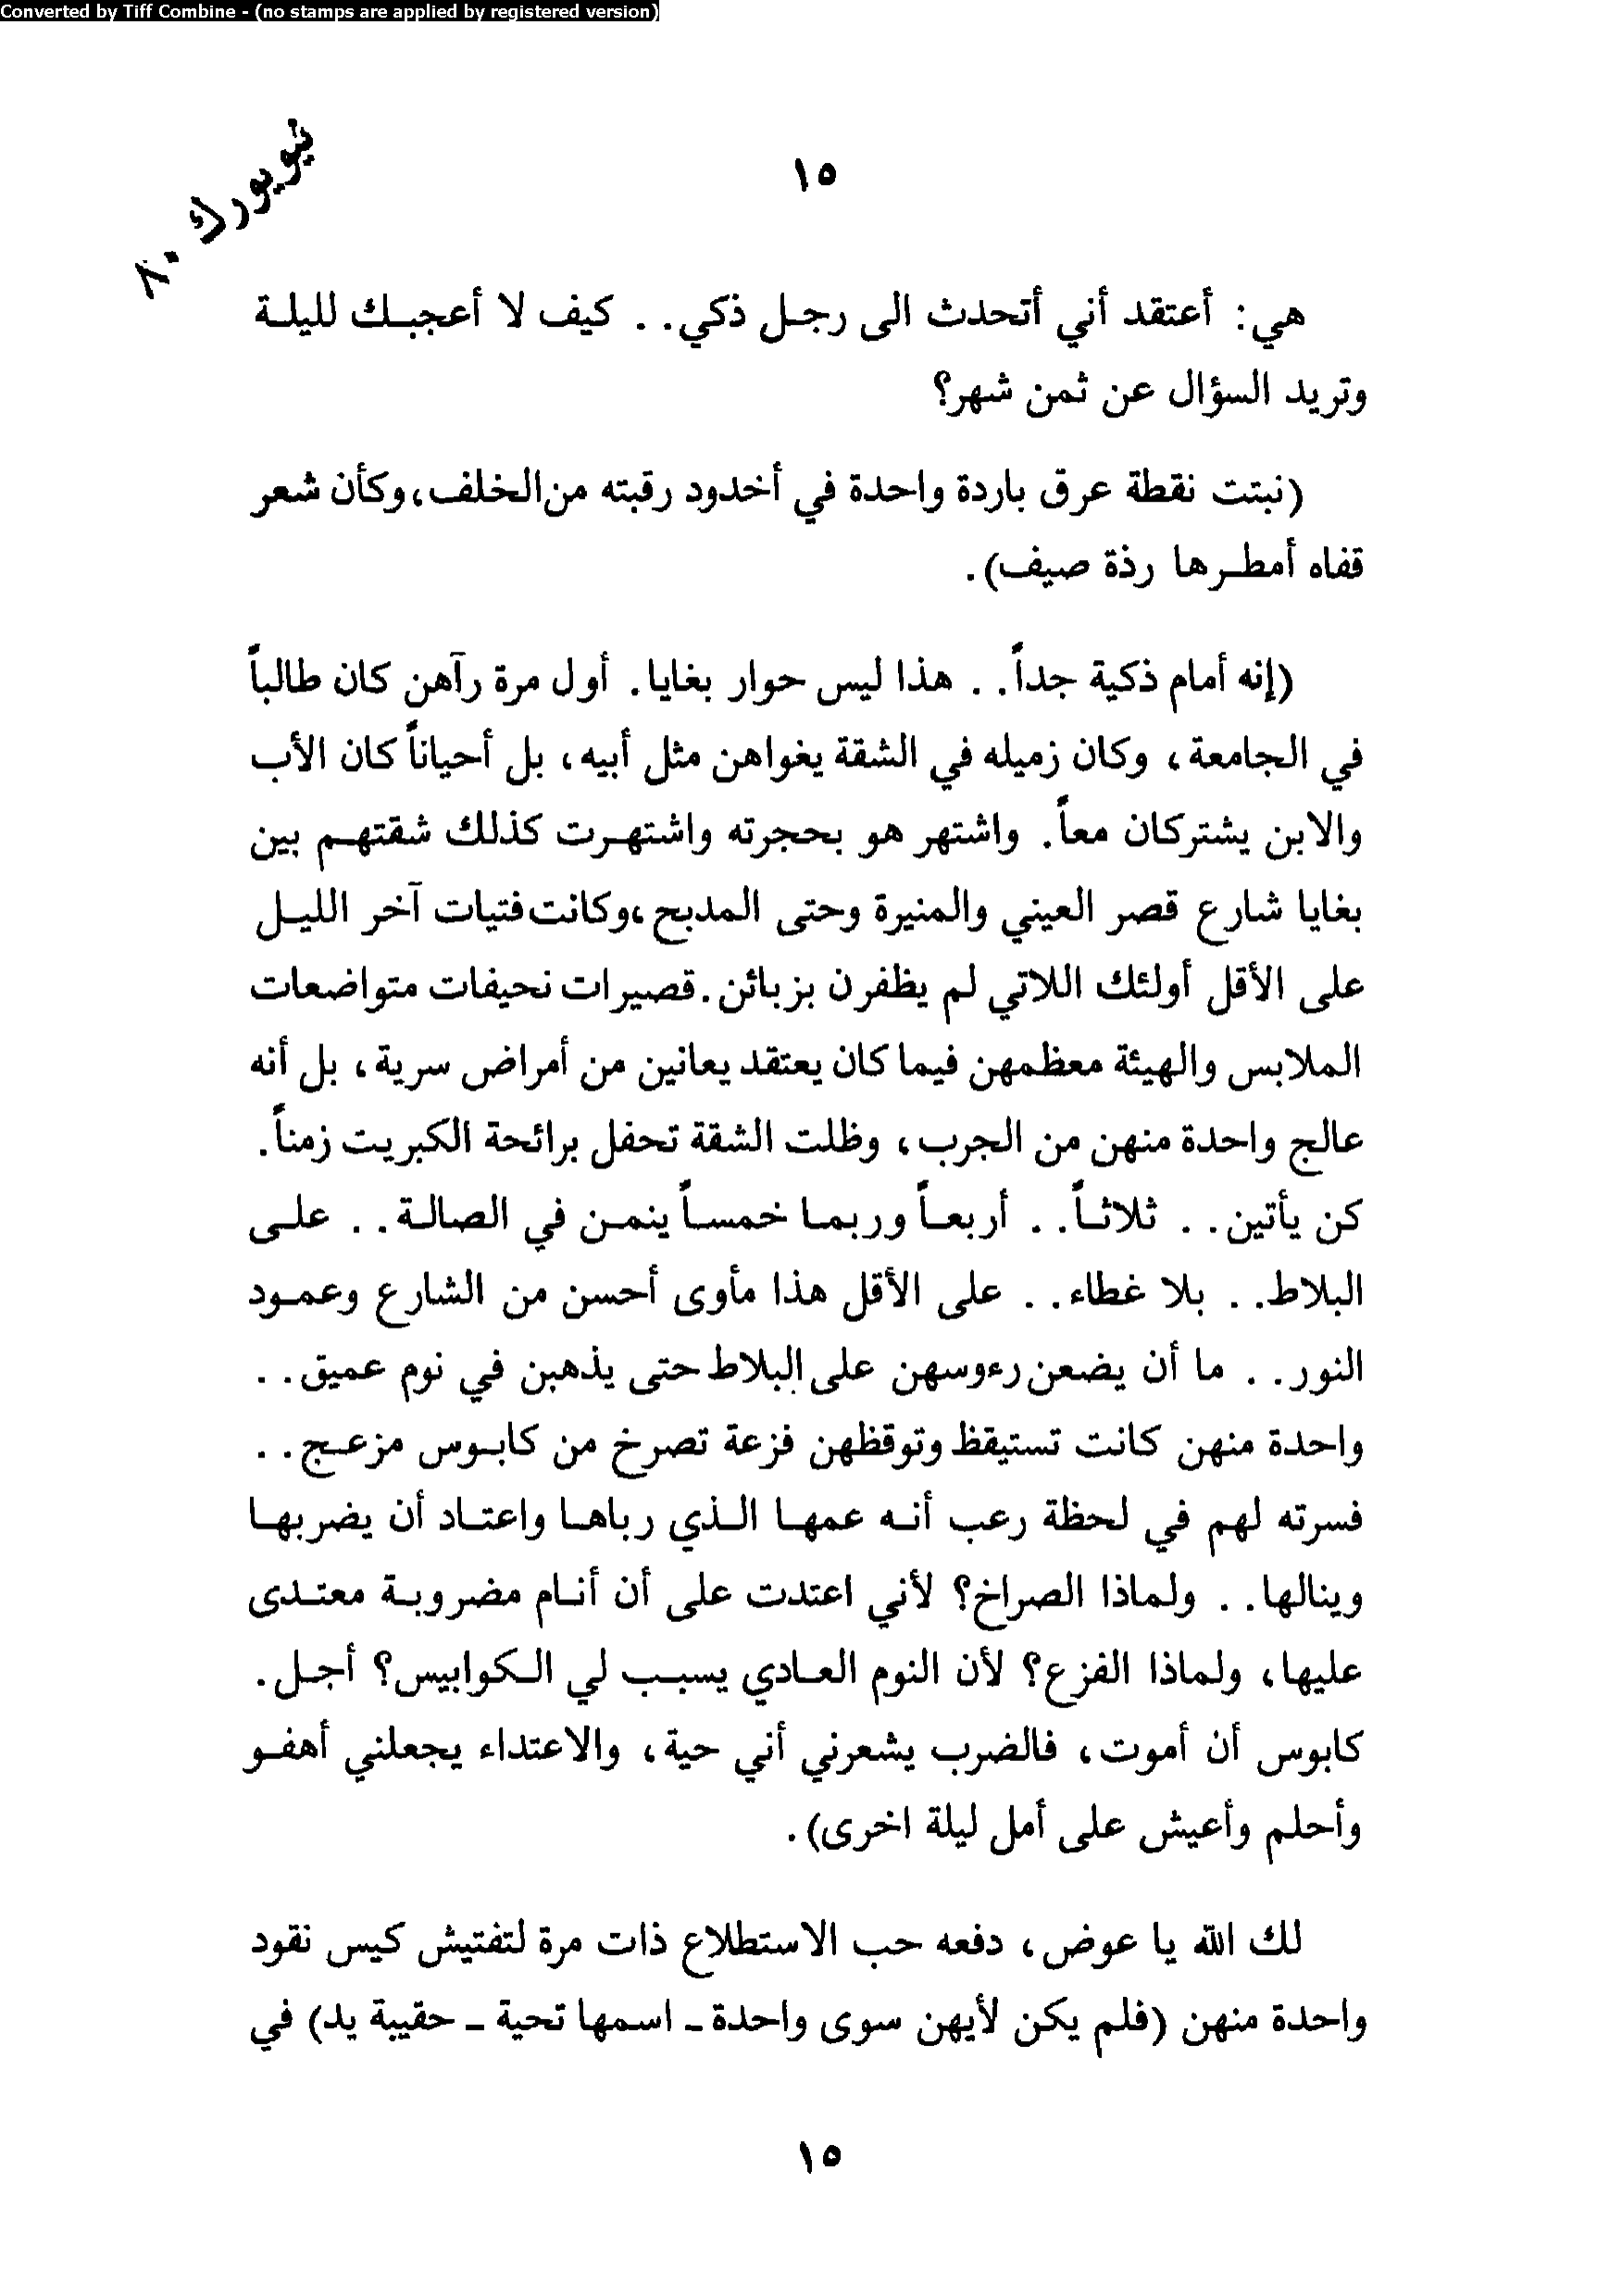 Converted by Tiff Combine - (no stamps are applied by registered version)
نيويورك ٨٠
١٥
هي: أعتقد أني أتحدث الى رجل ذكي.. كيف لا أعجبك لليلة
وتريد السؤال عن ثمن شهر؟
(نبتت نقطة عرق باردة واحدة في أخدود رقبته من الخلف، وكأن شعر
قفاه أمطرها رذة صيف).
(إنه أمام ذكية جداً.. هذا ليس حوار بغايا. أول مرة رآهن كان طالباً
في الجامعة، وكان زميله في الشقة يغواهن مثل أبيه، بل أحياناً كان الأب
والابن يشتركان معاً. واشتهر هو بحجرته واشتهرت كذلك شقتهم بين
بغايا شارع قصر العيني والمنيرة وحتى المدبح، وكانت فتيات آخر الليل
على الأقل أولئك اللاتي لم يظفرن بزبائن. قصيرات نحيفات متواضعات
الملابس والهيئة معظمهن فيما كان يعتقد يعانين من أمراض سرية، بل أنه
عالج واحدة منهن من الجرب، وظلت الشقة تحفل برائحة الكبريت زمناً.
كن يأتين.. ثلاثاً.. أربعاً وربما خمساً ينمن في الصالة.. على
البلاط.. بلا غطاء.. على الأقل هذا مأوى أحسن من الشارع وعمود
النور.. ما أن يضعن رءوسهن على البلاط حتى يذهبن في نوم عميق..
واحدة منهن كانت تستيقظ وتوقظهن فزعة تصرخ من كابوس مزعج..
فسرته لهم في لحظة رعب أنه عمها الذي رباها واعتاد أن يضربها
وينالها.. ولماذا الصراخ؟ لأني اعتدت على أن أنام مضروبة معتدى
عليها، ولماذا الفزع؟ لأن النوم العادي يسبب لي الكوابيس؟ أجل.
كابوس أن أموت، فالضرب يشعرني أني حية، والاعتداء يجعلني أهفو
وأحلم وأعيش على أمل ليلة اخرى).
لك الله يا عوض، دفعه حب الاستطلاع ذات مرة لتفتيش كيس نقود
واحدة منهن (فلم يكن لأيهن سوى واحدة ـ اسمها تحية ـ حقيبة يد) في
١٥